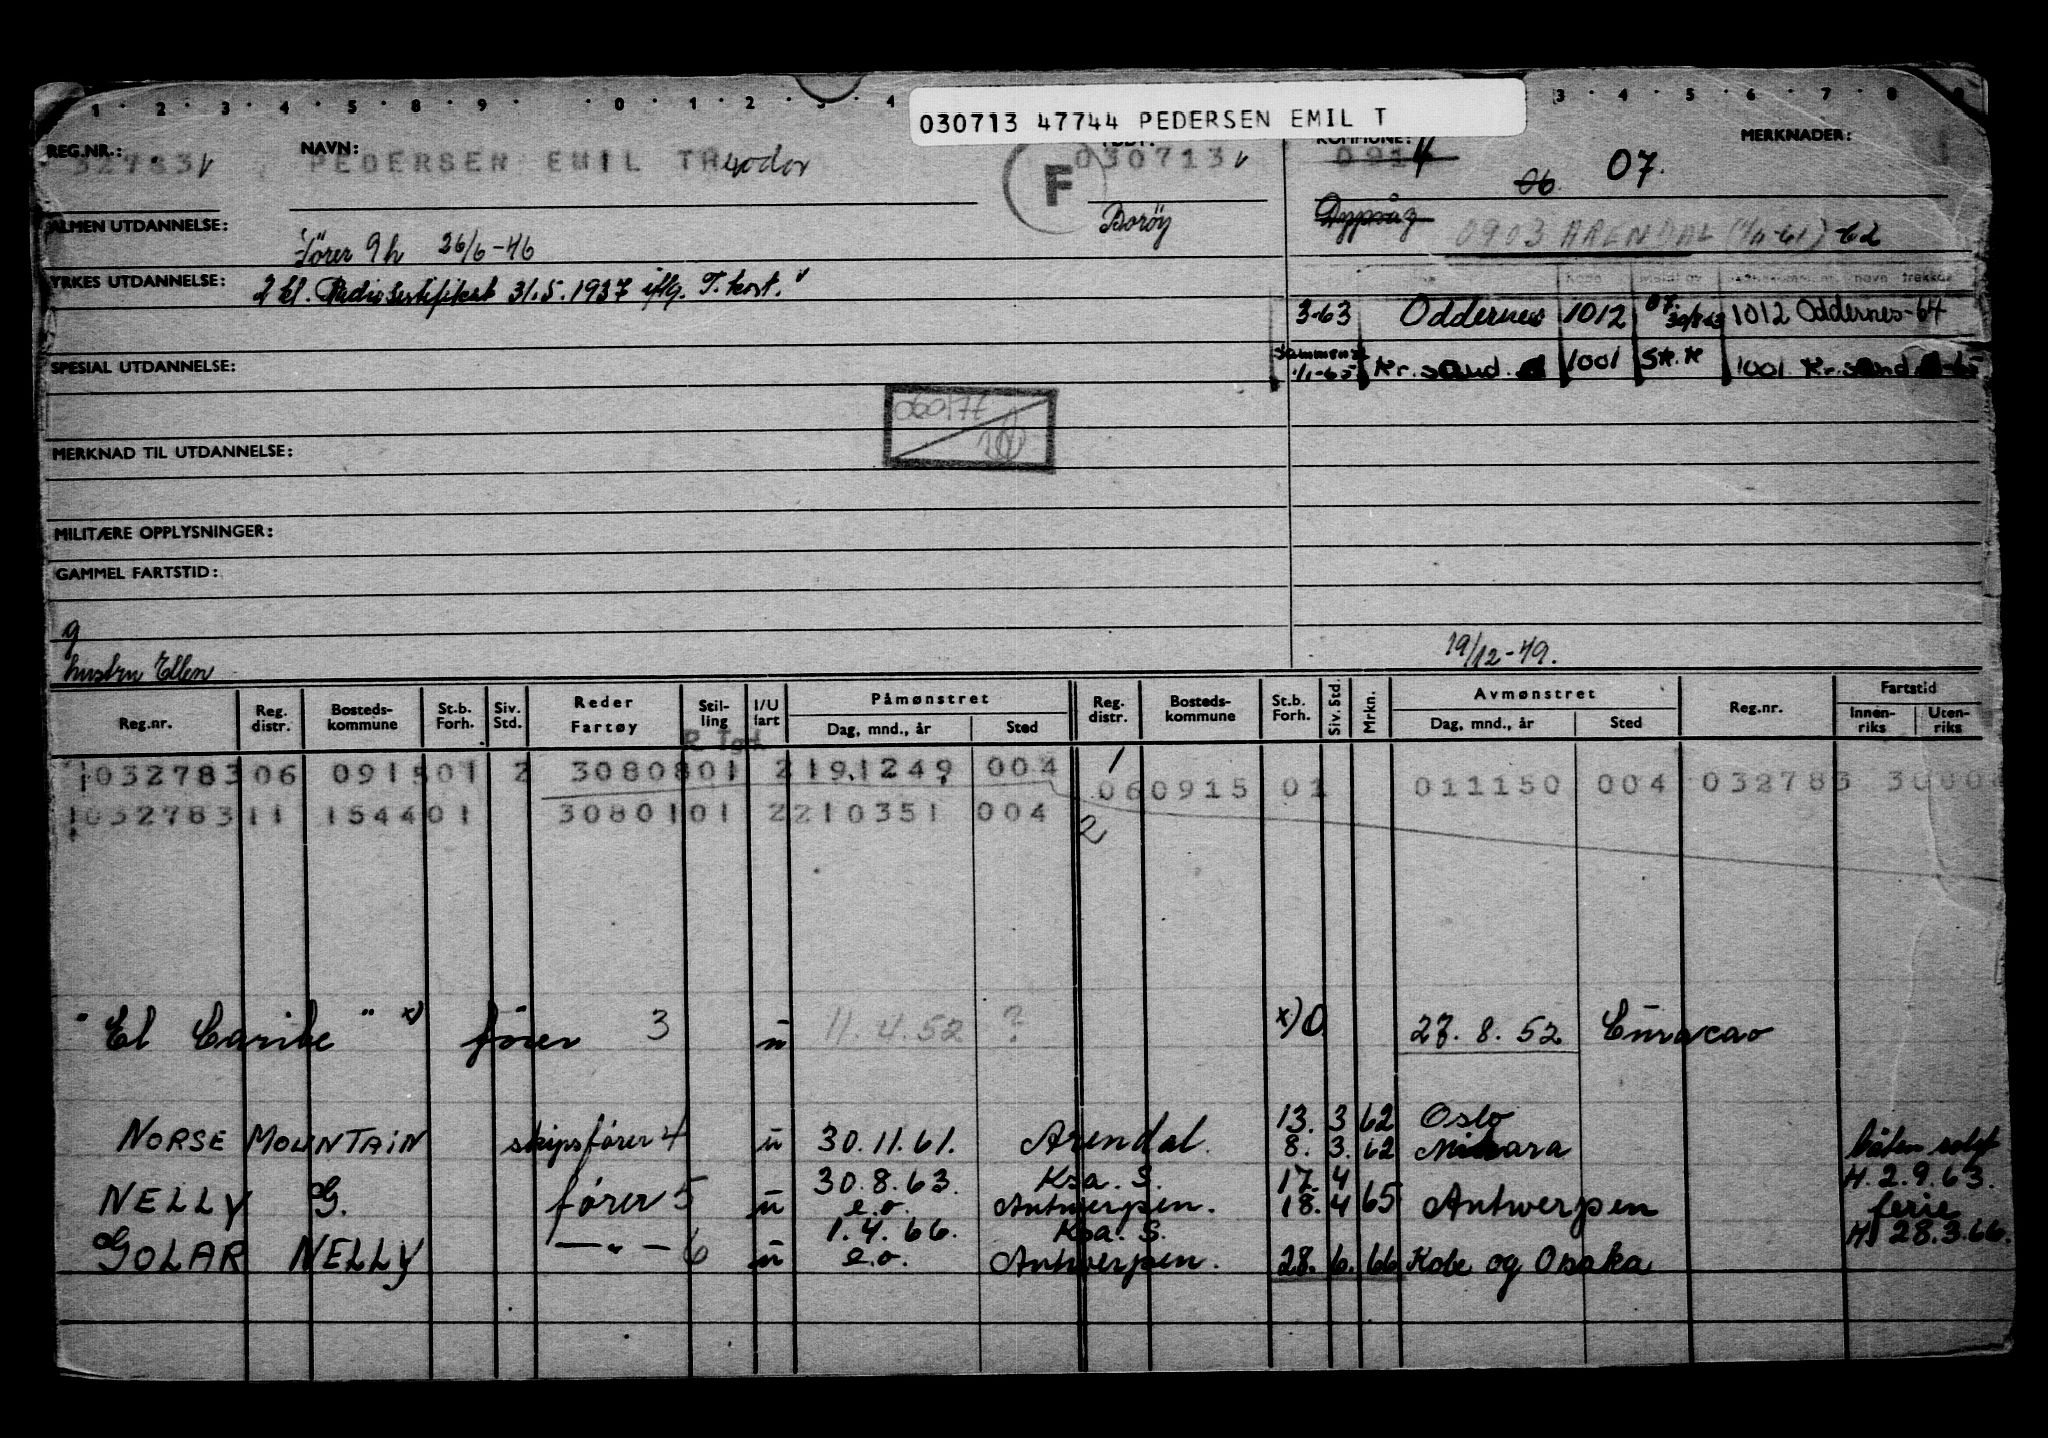 1 · 2 · 3 · 4 · 5 · 8 · 9 · · 0 · 1 · 2 · 3 · 4
3 · 4 · 5 · 6 · 7 · 8 · 9
030713 47744 PEDERSEN EMIL T
REG.NR.: 32783 v NAVN: PEDERSEN EMIL THeodor F FØDT: 030713 v KOMMUNE: 0914 06 07. MERKNADER:
Borøy Dypvåg
ALMEN UTDANNELSE: fører 9 h 26/6-46 0903 ARENDAL (1/11-61) -62
YRKES UTDANNELSE: 2 kl. Radiosertifikat 31.5.1937 iflg. T.kort. v
3-63 Oddernes 1012 07. 1012 Oddernes-64
SPESIAL UTDANNELSE: 1/1-65 Kr.sand. 1001 Sk.K 1001 Kr.sand -65
060177
MERKNAD TIL UTDANNELSE:
MILITÆRE OPPLYSNINGER:
GAMMEL FARTSTID:
g
hustru Ellen 19/12-49.
Reg.nr. Reg. distr. Bosteds-kommune St.b. Forh. Siv. Std. Reder Fartøy Stil-ling I/U fart Påmønstret Dag, mnd., år Sted Reg. distr. Bosteds-kommune St.b. Forh. Siv. Std. Mrkn. Avmønstret Dag, mnd., år Sted Reg.nr. Fartstid Innen-riks Uten-riks
1032783 06 0915 01 2 30808 01 2 191249 004 1 06 0915 01 011150 004 032783
1032783 11 1544 01 30801 01 2 210351 004 2
"El Caribe" x) fører 3 u 11.4.52 ? x) 0 27.8.52 Curacao
13. 3 62 Oslo
NORSE MOUNTAIN skipsfører 4 u 30.11.61. Arendal. 8. 3. 62 båten solgt
30.8.63. Ksa. S. 17. 4 H. 2.9.63.
NELLY G. fører 5 u e.o. Antwerpen. 18. 4 65 Antwerpen ferie
1.4.66. Ksa. S. H. 28.3.66.
GOLAR NELLY — " — 6 u e.o. Antwerpen. 28. 6. 66 Kobe og Osaka